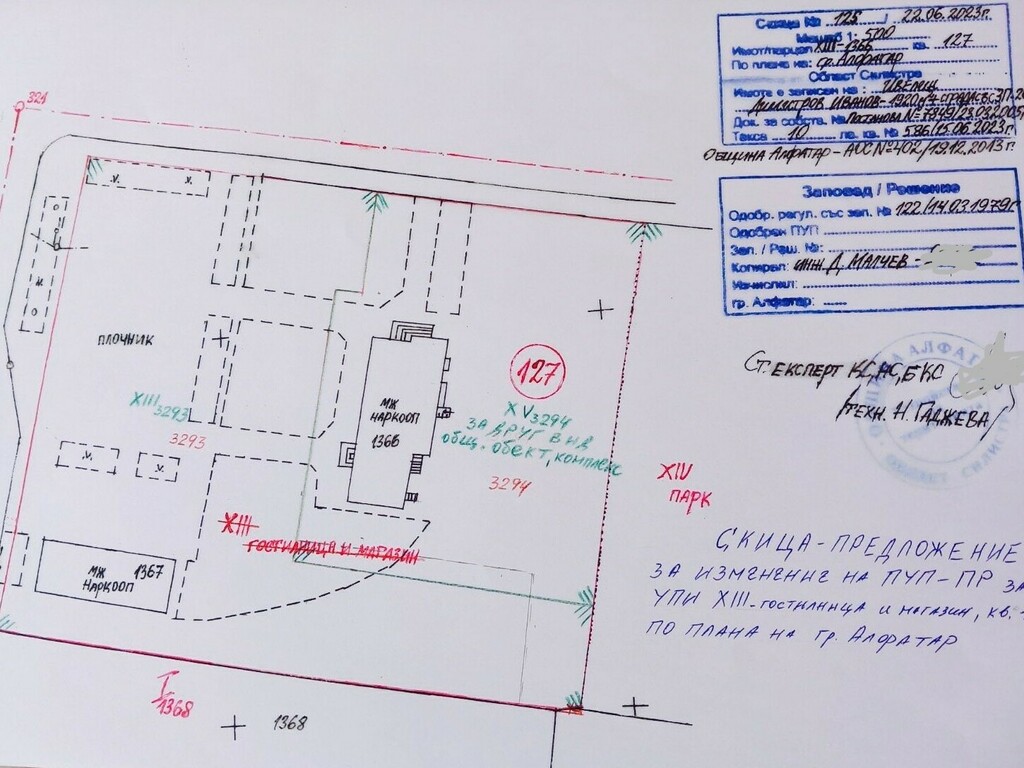 Скица № 125 / 22.06.2023г.
Мащаб 1: 500
Имот/парцел XIII-1366 кв. 127
По плана на: гр. Алфатар
Област Силистра
Имота е записан на: Ивелин
Димитров Иванов-1920/
Док. за собств. №
Такса 10 лв. кв. № 586/15.06.2023г.
Община Алфатар - АОС №402/19.12.2013г.
Заповед / Решение
Одобр. регул. със зап. № 122/14.03.1979г
Одобрен ПУП
Зап. / Реш. №:
Копирал: инж. Д. Малчев -
Изчислил:
гр. Алфатар:
Ст. експерт КС, АС, БКС
/техн. Н. Гаджева/
ОБЛАСТ СИЛИСТРА
321
плочник
XIII 3293
3293
МЖ
Наркооп
1366
127
XV 3294
за друг вид
общ. обект, комплекс
3294
XIV
парк
XIII
гостилница и магазин
МЖ 1367
Наркооп
I 1368
1368
Скица-предложение
за изменение на ПУП-ПР за
УПИ XIII-гостилница и магазин, кв.
по плана на гр. Алфатар